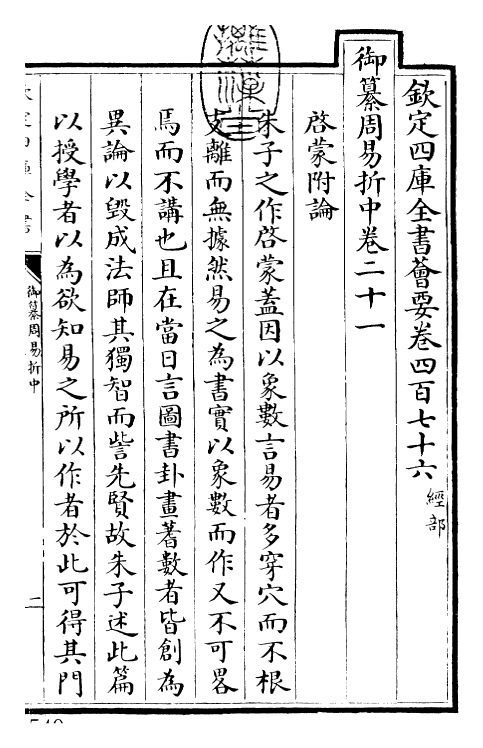 欽定四庫全書薈要卷四百七十六 經部
御纂周易折中卷二十一
啓蒙附論
朱子之作啓蒙蓋因以象數言易者多穿穴而不根
支離而無據然易之為書實以象數而作又不可畧
焉而不講也且在當日言圖書卦畫蓍數者皆創為
異論以毀成法師其獨智而訾先賢故朱子述此篇
以授學者以為欲知易之所以作者於此可得其門
御纂周易折中